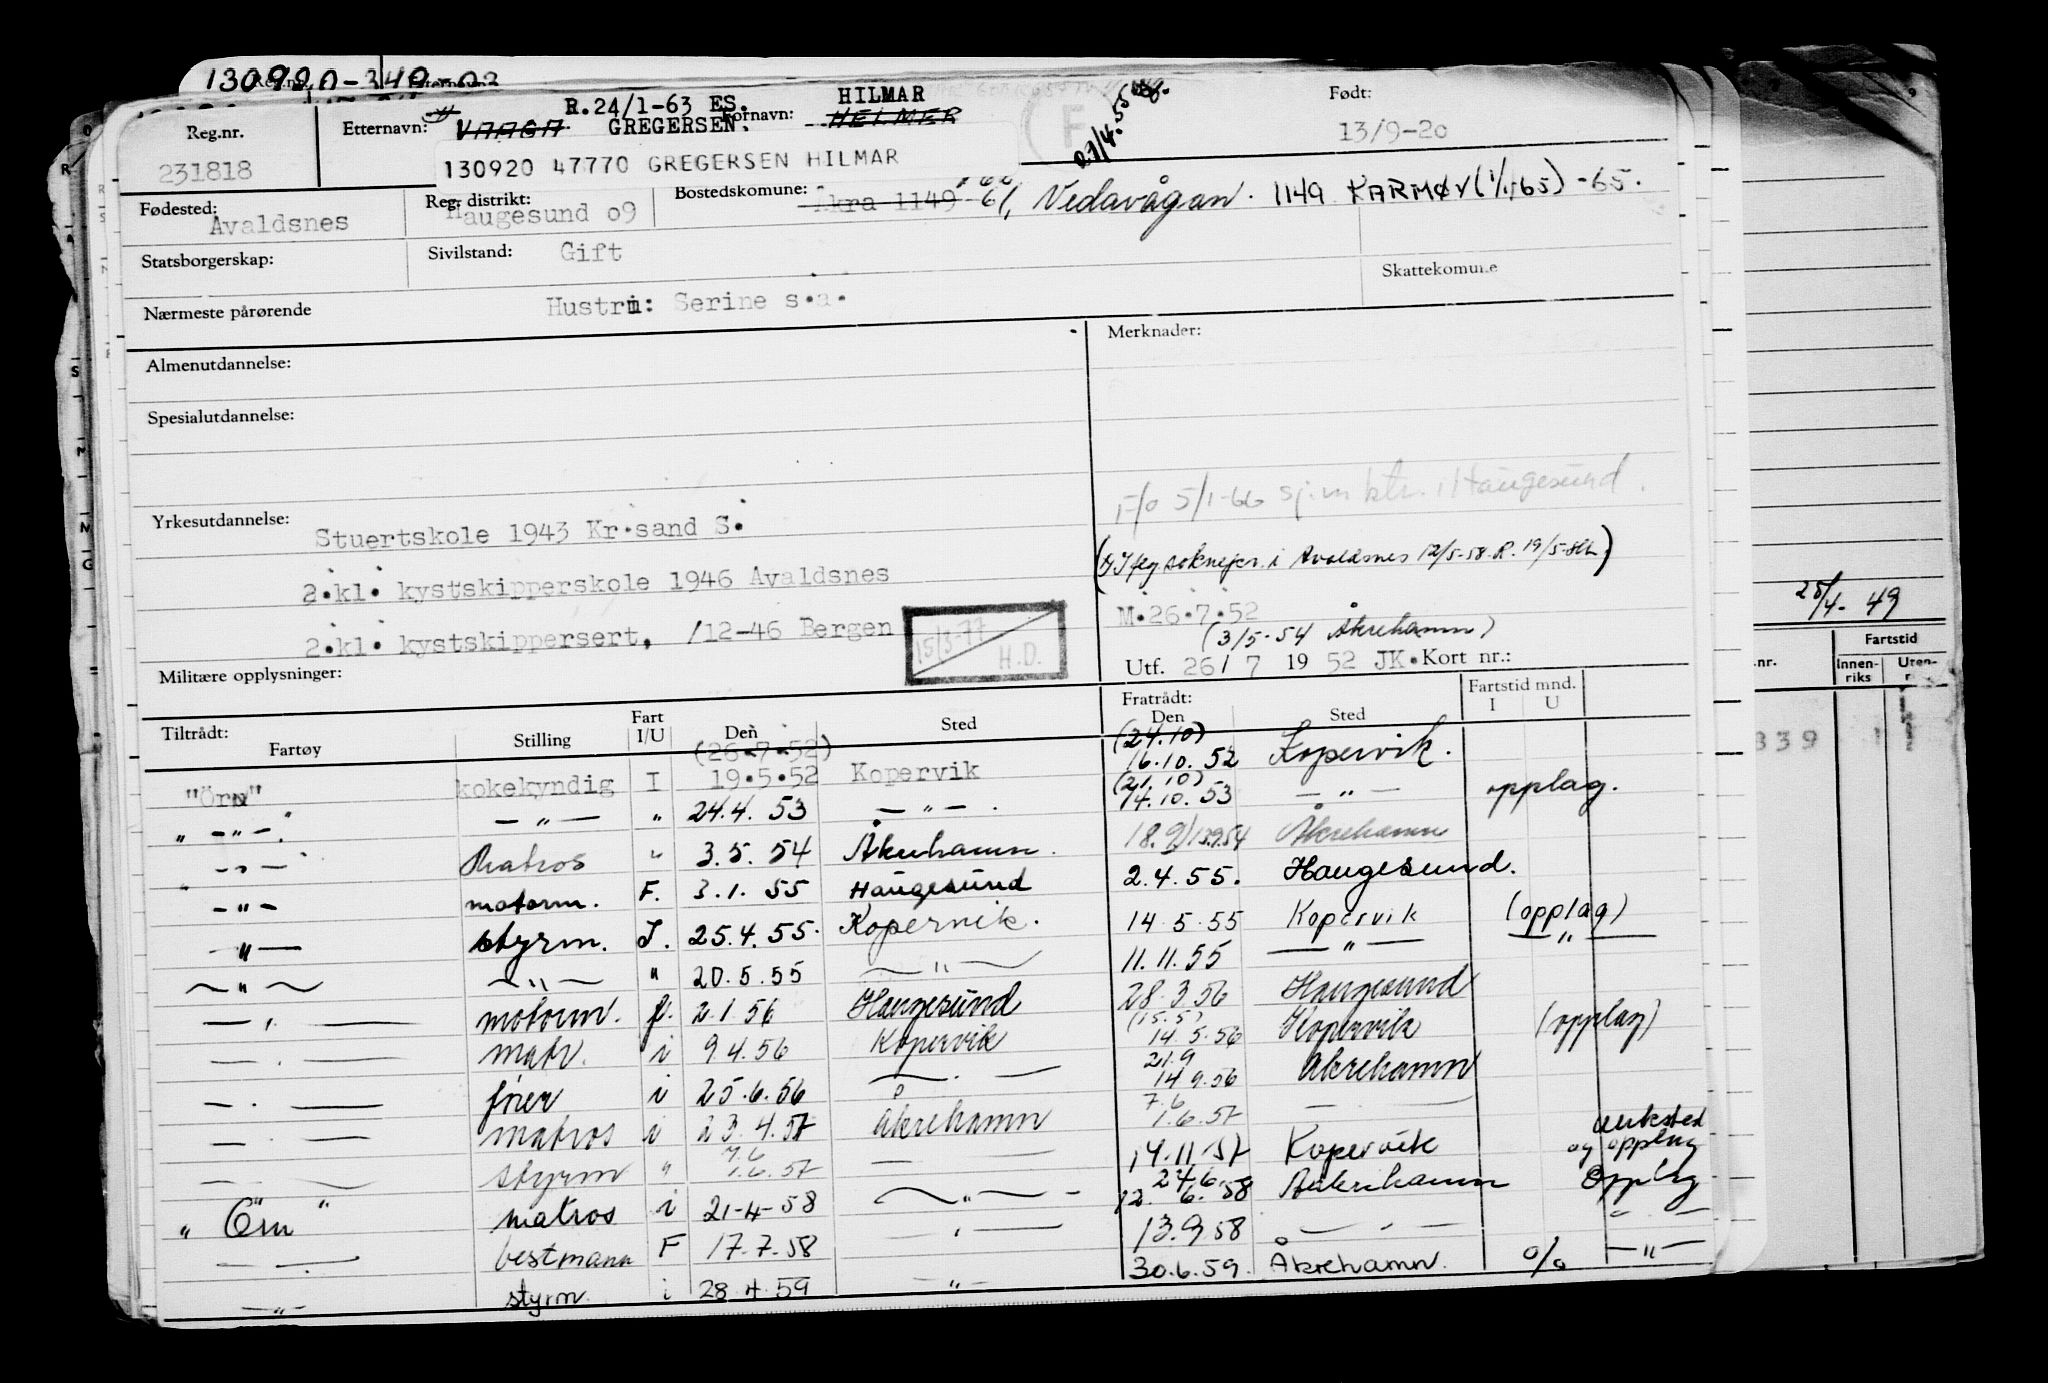 130920-349-03
R.24/1-63 ES. HILMAR
Reg.nr. Etternavn: VAAGA GREGERSEN. Fornavn: HELMER 27/4.55 Født:
231818 130920 47770 GREGERSEN HILMAR F 13/9-20
Fødested: Avaldsnes Reg. distrikt: Haugesund 09 Bostedskomune: Åkra 1149 -61, Vedavågan. 1149 KARMØY (1/1-65) -65.
Statsborgerskap: Sivilstand: Gift Skattekomune
Nærmeste pårørende Hustru: Serine s.a.
Almenutdannelse: Merknader:
Spesialutdannelse:
F/o 5/1-66 sj.m ktr. i Haugesund.
Yrkesutdannelse: Stuertskole 1943 Kr.sand S.
i Avaldsnes 12/5-58. R. 19/5-
2.kl. kystskipperskole 1946 Avaldsnes
M.26.7.52
2.kl. kystskippersert, /12-46 Bergen 15/3-77 H.D. (3/5-54 Åkrehamn)
Utf. 26/7 1952 JK. Kort nr.:
Militære opplysninger:
25/4-49
Tiltrådt: Fratrådt: Fartstid mnd.
Fartøy Stilling Fart I/U Den Sted Den Sted I U
"Örn" kokekyndig I (26.7.52) 19.5.52 Kopervik (24.10) 16.10.52 Kopervik.
" —"—. —"— " 24.4.53 —"—. (21.10) 14.10.53 —"— opplag.
—"— Matros " 3.5.54 Åkrehamn. 18.9/13.9.54 Åkrehamn
" —"— motorm. F. 3.1.55 Haugesund 2.4.55. Haugesund.
—"— styrm. I. 25.4.55. Kopervik. 14.5.55 Kopervik (opplag)
—"— —"— " 20.5.55 —"— 11.11.55 —"— —"—
—"— motorm. f. 2.1.56 Haugesund 28.3.56 Haugesund
—"— matr. i 9.4.56 Kopervik (15.5) 14.5.56 Kopervik (opplag)
—"— fører i 25.6.56 —"— 21.9 14.9.56 Åkrehamn
—"— matros i 23.4.57 Åkrehamn 7.6 1.6.57 —
— styrm " 7.6 1.6.57 — 14.11.57 Kopervik verksted og opplag
" Örn " matros i 21-4-58 —"— 24.6. 12.6.58 Åkrehamn Opplag
—"— bestmann F 17.7.58 —"— 13.9.58 —"— —"—
—"— styrm i 28.4.59 —"— 30.6.59. Åkrehamn. o/o —"—
.nr. Fartstid
Innenriks Uten-
839